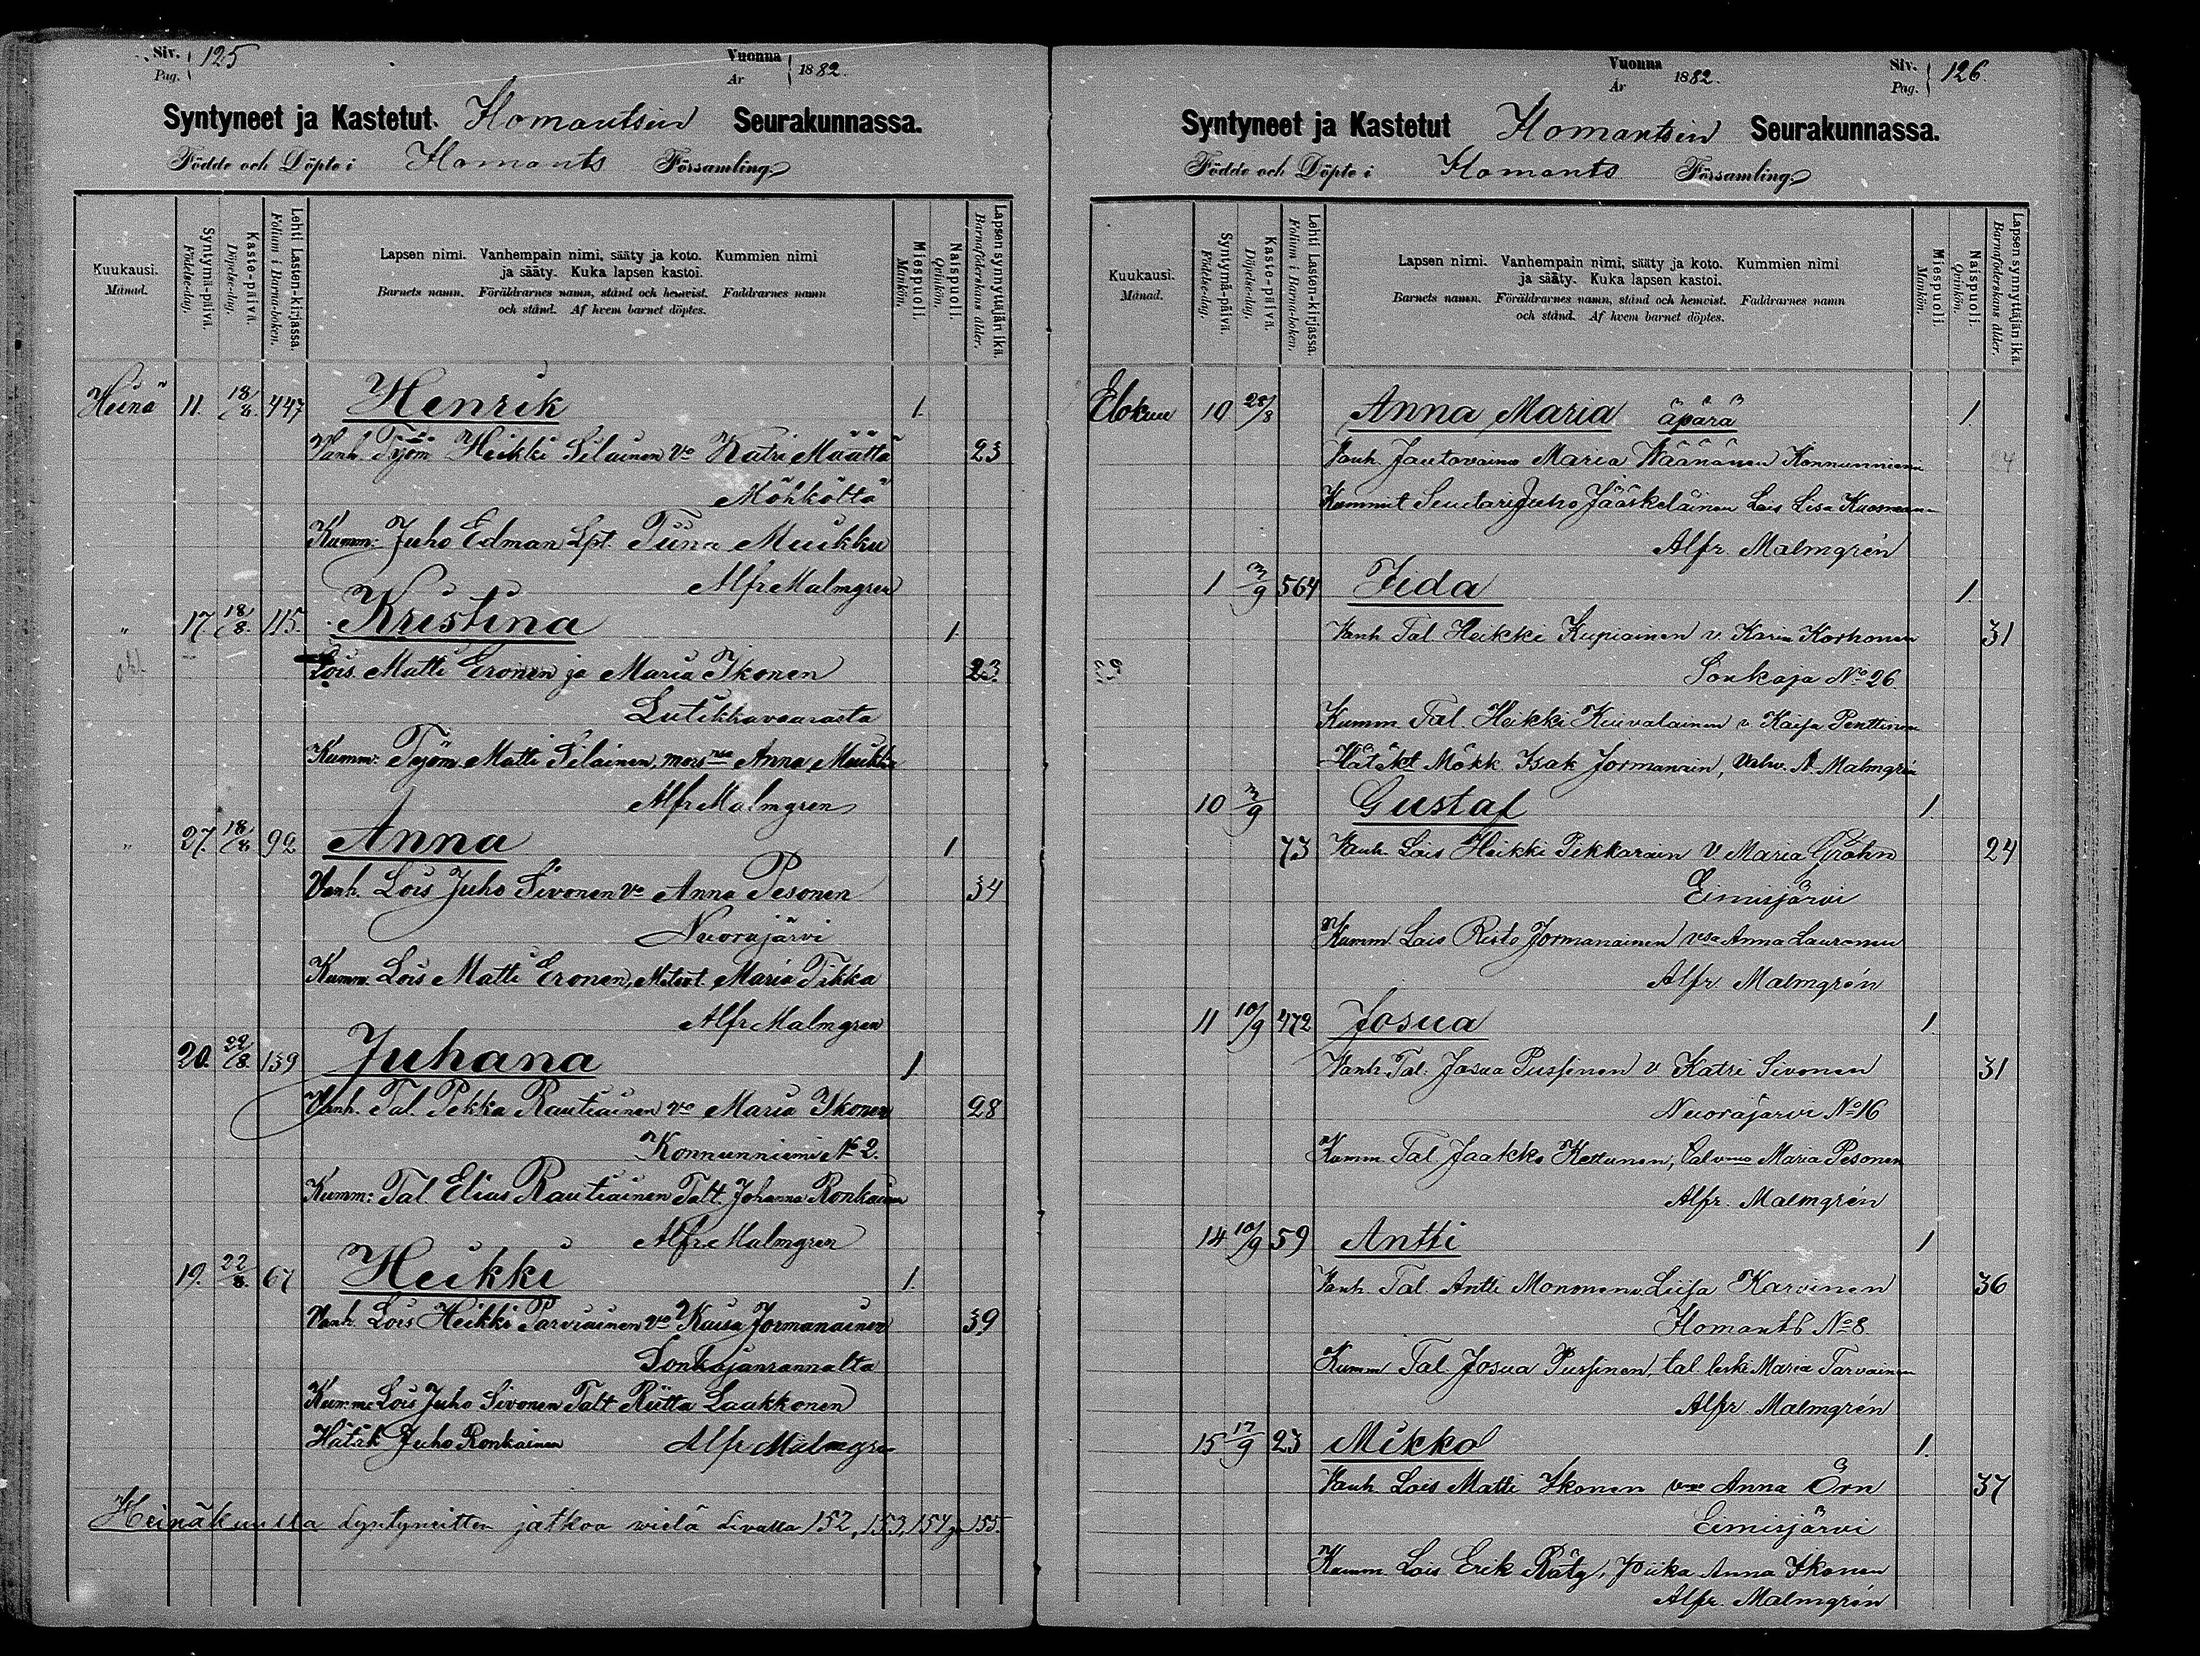 Siv. Pag. 125
Vuonna År 1882.
Syntyneet ja Kastetut. Ilomantsin Seurakunnassa.
Födde och Döpte i Ilomants Församling.
Kuukausi. Månad.
Syntymä-päivä. Födelse-dag.
Kaste-päivä. Döpelse-dag.
Lehti Lasten-kirjassa. Folium i Barna-boken.
Lapsen nimi. Vanhempain nimi, sääty ja koto. Kummien nimi
ja sääty. Kuka lapsen kastoi.
Barnets namn. Föräldrarnes namn, stånd och hemvist. Faddrarnes namn
och stånd. Af hvem barnet döptes.
Miespuoli. Mankön.
Naispuoli. Qvinkön.
Lapsen synnyttäjän ikä. Barnaföderskans ålder.
Heinä 11. 18/8. 447 Henrik 1.
Vanh. Työm Heikki Silainen vo Katri Määttä 23
Möhköltä
Kumm: Juho Edman Lpt. Tiina Muikku
Alfr Malmgren
" 17. 18/8. 115. Kristina 1.
Lois. Matti Eronen ja Maria Ikonen 23.
Lutikkavaarasta
Kumm: Työm Matti Silainen, mors Anna Muikku
Alfr Malmgren
" 27. 18/8 92 Anna 1.
Vanh. Lois Juho Sivonen vo Anna Pesonen 34
Nuorajärvi
Kumm. Lois Matti Eronen, Maria Tikka
Alfr Malmgren
20. 22/8. 139 Juhana 1
Vanh. Tal. Pekka Rautiainen vo Maria Ikonen 28
Konnunniemi No 2.
Kumm: Tal Elias Rautiainen Talt. Johanna Ronkainen
Alfr. Malmgren
19. 22/8. 67 Heikki 1.
Vanh. Lois Heikki Parviainen vo Kaisa Jormanainen 39
Sonkajanrannalta
Kumm: Lois Juho Sivonen Talt Riitta Laakkonen
Hätäk Juho Ronkainen Alfr Malmgren
Heinäkuussa syntyneitten jatkoa vielä sivulla 152, 153, 154 ja 155.
Vuonna År 1882.
Siv. Pag. 126.
Syntyneet ja Kastetut Ilomantsin Seurakunnassa.
Födde och Döpte i Ilomants Församling.
Kuukausi. Månad.
Syntymä-päivä. Födelse-dag.
Kaste-päivä. Döpelse-dag.
Lehti Lasten-kirjassa. Folium i Barna-boken.
Lapsen nimi. Vanhempain nimi, sääty ja koto. Kummien nimi
ja sääty. Kuka lapsen kastoi.
Barnets namn. Föräldrarnes namn, stånd och hemvist. Faddrarnes namn
och stånd. Af hvem barnet döptes.
Miespuoli. Mankön.
Naispuoli. Qvinkön.
Lapsen synnyttäjän ikä. Barnaföderskans ålder.
Elokuu 10 28/8 Anna Maria äpärä 1.
Vanh. Maria Väänänen Konnunniemi 24
Kummit Juho Jääskeläinen Lois Lisa Kuosmanen
Alfr. Malmgrén
1 3/9 564 Iida 1.
Vanh Tal Heikki Kupiainen v. Karin Korhonen 31
Sonkaja No 26.
Kumm. Tal. Heikki Kuivalainen v Kaisa Penttinen
Hätäkt Mökk. Isak Jormanain, Vahv. A. Malmgrén
10 3/9 Gustaf 1.
73 Vanh Lois Heikki Pekkarain V. Maria Gröhn 24
Eimisjärvi
Kumm. Lois Risto Jormanainen vsa Anna Lauronen
Alfr. Malmgrén
11 10/9 472 Josua 1.
Vanh. Tal. Josua Pussinen v Katri Sivonen 31
Nuorajärvi No 16
Kumm. Tal Jaakko Kettunen, Maria Pesonen
Alfr. Malmgrén
14 10/9 59 Antti 1
Vanh Tal. Antti Mononen v. Liisa Karvinen 36
Ilomants No 8.
Kumm Tal. Josua Pussinen, tal. leski Maria Tarvainen
Alfr. Malmgrén
15 17/9 23 Mikko 1.
Vanh Lois Matti Ikonen Anna Örn 37
Eimisjärvi
Kumm. Lois Erik Räty, Piika Anna Ikonen
Alfr. Malmgrén